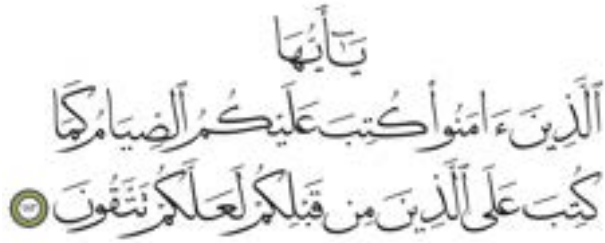 يَٰٓأَيُّهَا
ٱلَّذِينَ ءَامَنُوا۟ كُتِبَ عَلَيْكُمُ ٱلصِّيَامُ كَمَا
كُتِبَ عَلَى ٱلَّذِينَ مِن قَبْلِكُمْ لَعَلَّكُمْ تَتَّقُونَ ١٨٣